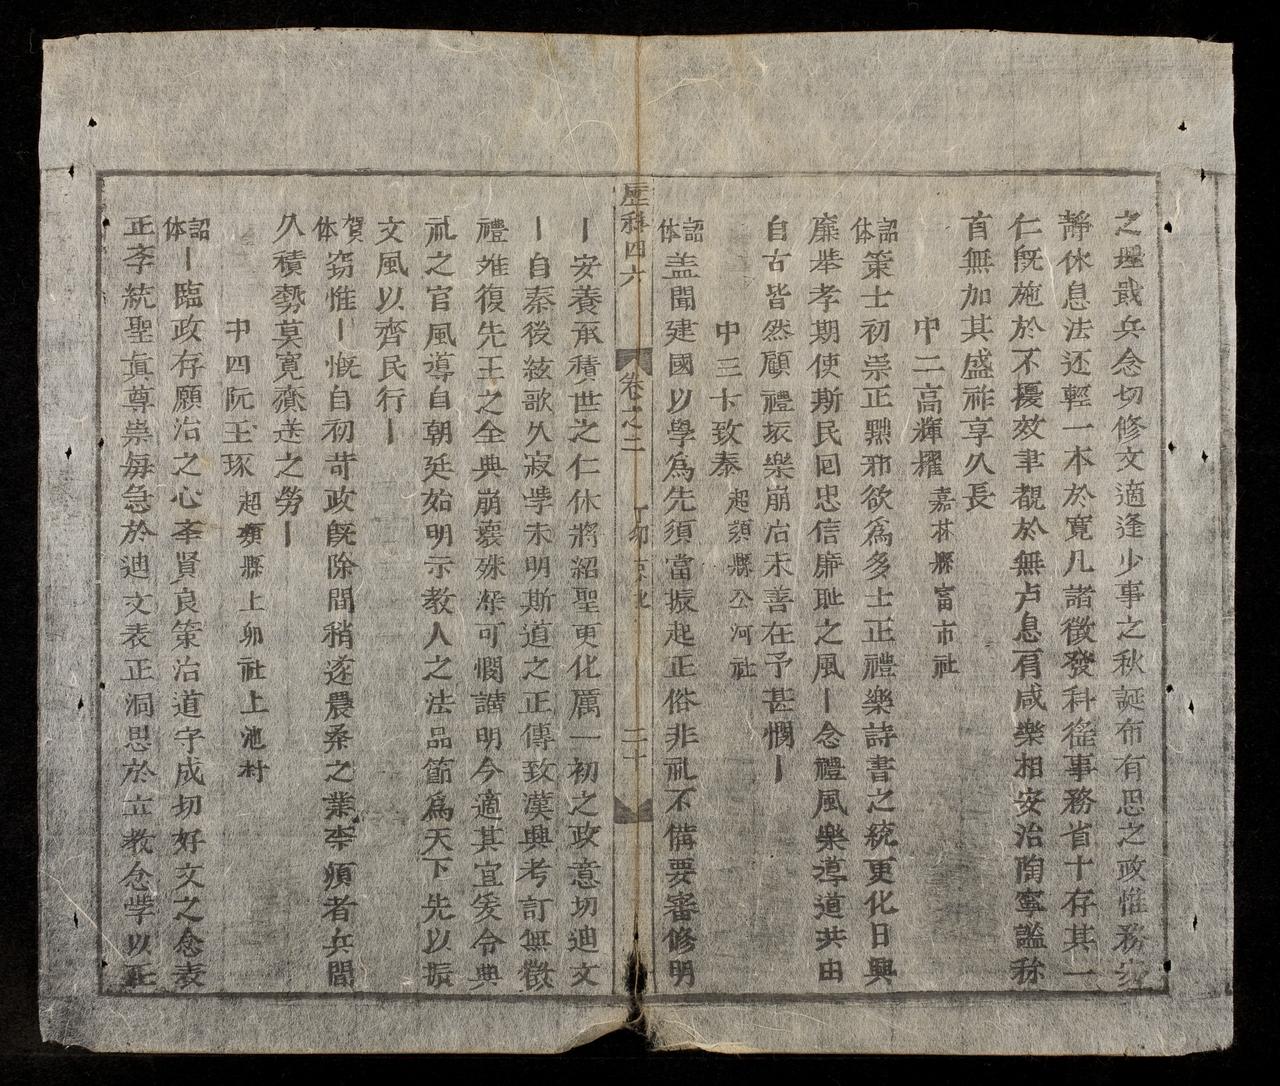 之理戢兵念切修文適逢少事之秋誕布有思之政惟務安
靜休息法还輕一本於寬凡諸徵發科徭事務省十存其一
仁既施於不擾效聿覩於無卢息肩咸樂相安治陶寧謐称
首無加其盛祚享久長
中二高輝耀 嘉林縣富市社
詔体策士初崇正黜邪欲為多士正禮樂詩書之統更化日興
廉举孝期使斯民囘忠信廉耻之風丨念禮風樂導道共由
自古皆然顧禮坂樂崩治未善在予甚憫丨
中三卞致泰 超類縣公河社
詔体盖聞建國以學為先須當振起正俗非礼不備要審修明
歴科四六 卷之二 二十
丨安養承積世之仁休將紹聖更化厲一初之政意切迪文
丨自秦後絃歌久寂斈未明斯道之正傳致漢興考訂無徵
禮难復先王之全典崩壞殊深可憫講明今適其宜爰令典
礼之官風導自朝廷始明示教人之法品節為天下先以振
文風以齊民行丨
賀体窃惟丨慨自初苛政旣除間稍逐農桑之業李須者兵間
久積勢莫寬賷送之勞丨
中四阮玉琢 超類縣上卯社上池村
詔体丨臨政存願治之心李賢良策治道字成切好文之念表
正李統聖眞尊崇毎急於迪文表正洞思於立教念斈以正